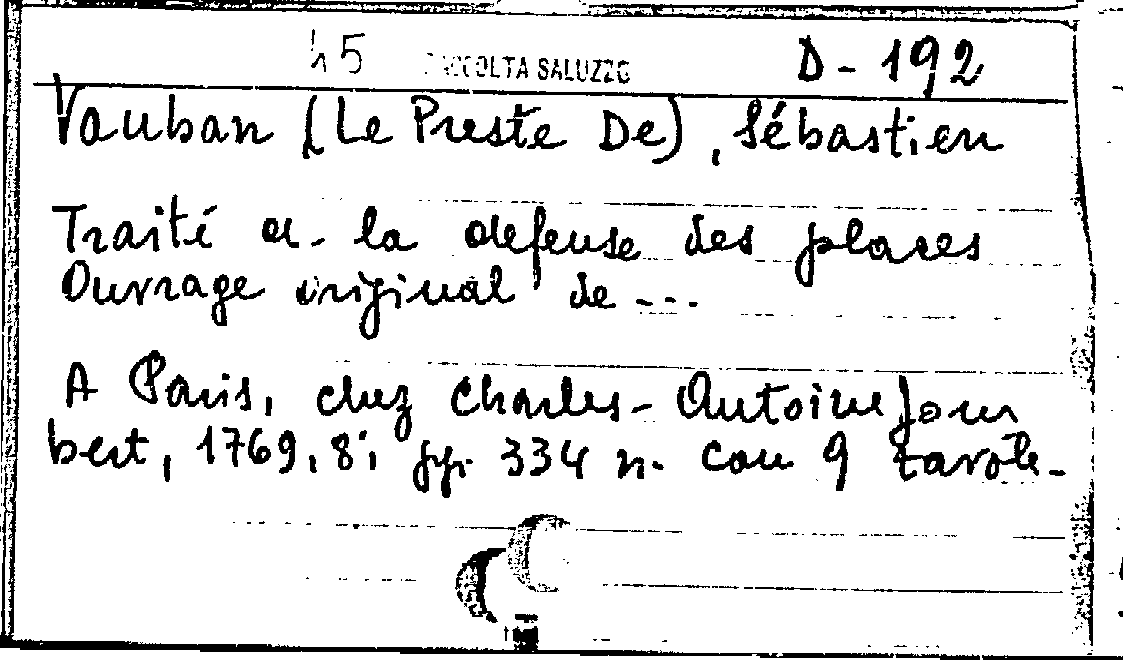 45 RACCOLTA SALUZZO D-192
Vauban (Le Preste De), Sébastien
Traité de la defense des places
Ouvrage original de ---
A Paris, chez Charles-Antoine Jom
bert, 1769, 8°, pp. 334 n. con 9 tavole.